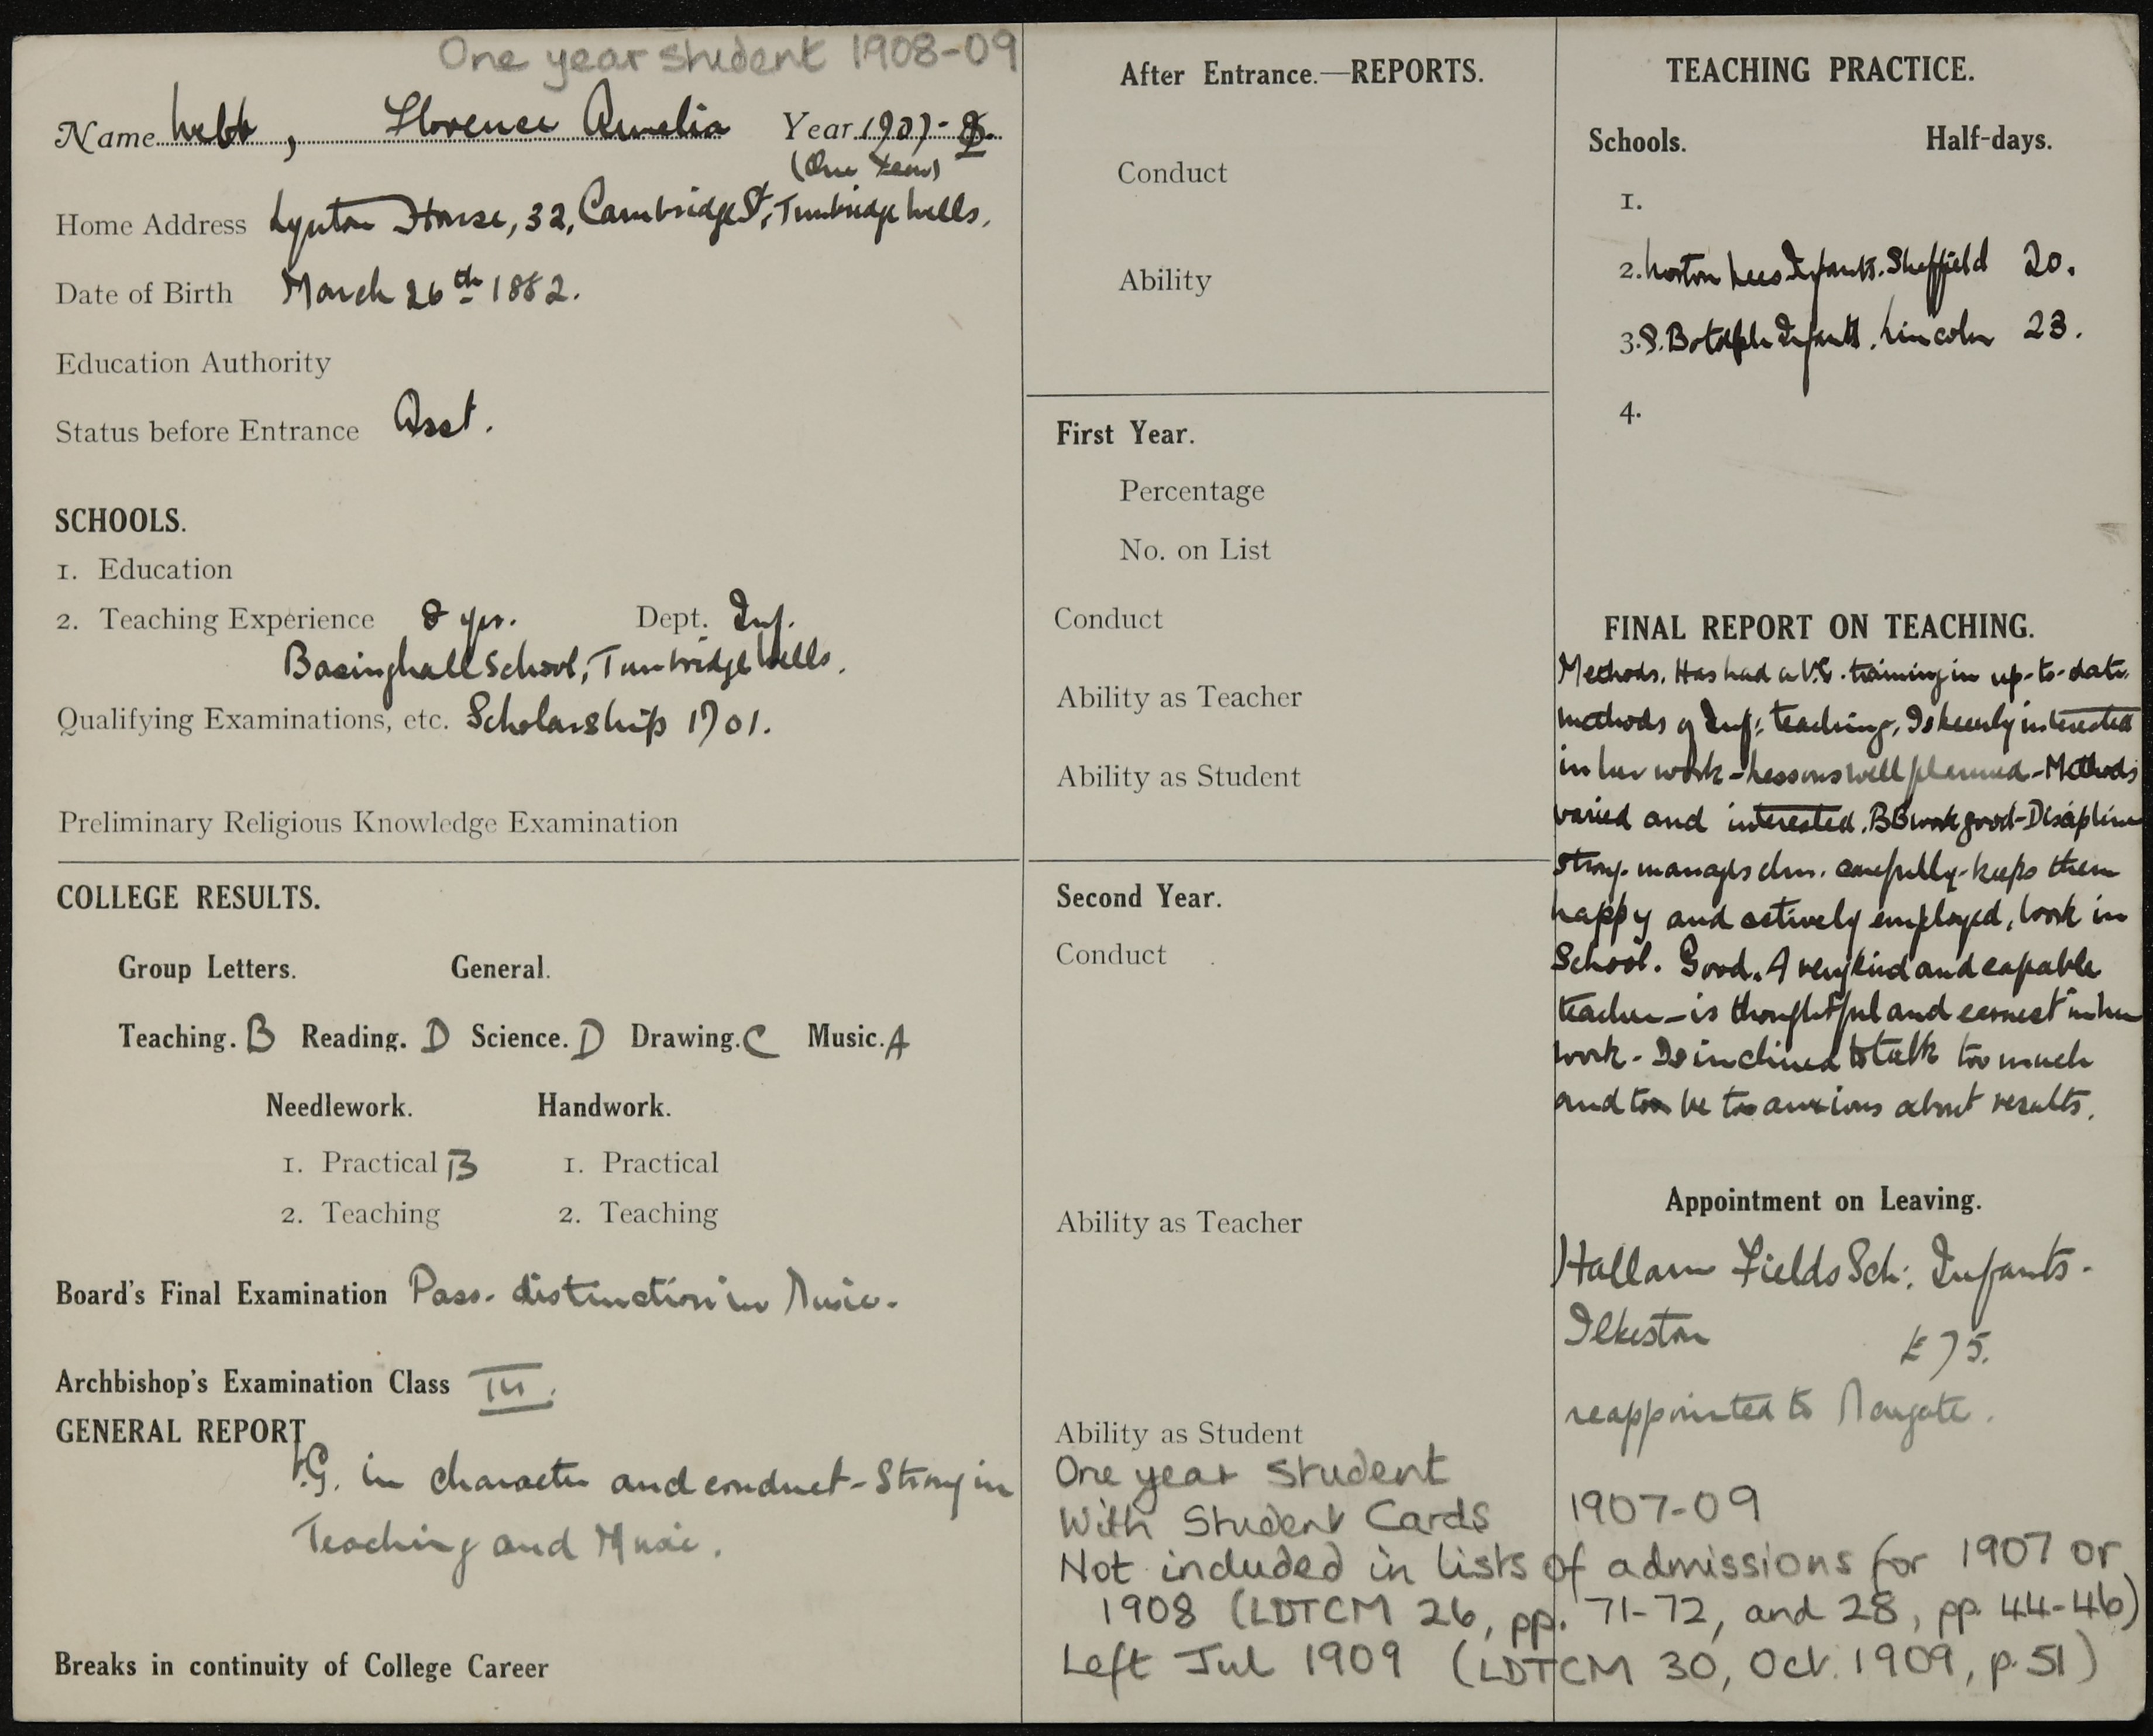 One year student 1908-09
Name Webb, Florence Amelia Year 1907-8.
(One Year)
Home Address Lynton House, 32, Cambridge St, Tunbridge Wells.
Date of Birth March 26th 1882.
Education Authority
Status before Entrance Asst.
SCHOOLS.
1. Education
2. Teaching Experience 8 yrs. Dept. Inf.
Basinghall School, Tunbridge Wells.
Qualifying Examinations, etc. Scholarship 1901.
Preliminary Religious Knowledge Examination
COLLEGE RESULTS.
Group Letters. General.
Teaching. B Reading. D Science. D Drawing. C Music. A
Needlework. Handwork.
1. Practical B 1. Practical
2. Teaching 2. Teaching
Board's Final Examination Pass. distinction in Music.
Archbishop's Examination Class III.
GENERAL REPORT
V.G. in character and conduct - Strong in
Teaching and Music.
Breaks in continuity of College Career
After Entrance.—REPORTS.
Conduct
Ability
First Year.
Percentage
No. on List
Conduct
Ability as Teacher
Ability as Student
Second Year.
Conduct
Ability as Teacher
Ability as Student
One year student
With Student Cards 1907-09
Not included in lists of admissions for 1907 or
1908 (LDTCM 26, pp. 71-72, and 28, pp. 44-46)
Left Jul 1909 (LDTCM 30, Oct. 1909, p. 51)
TEACHING PRACTICE.
Schools. Half-days.
1.
2. Norton Lees Infants. Sheffield 20.
3. S. Botolph Infants. Lincoln 23.
4.
FINAL REPORT ON TEACHING.
Methods. Has had a V.G. training in up-to-date
methods of Inf: teaching, Is keenly interested
in her work - Lessons well planned - Methods
varied and interested. BB work good - Discipline
Strong. manages chn. carefully - keeps them
happy and actively employed, Work in
School. Good. A very kind and capable
teacher - is thoughtful and earnest in her
work - Is inclined to talk too much
and too be too anxious about results.
Appointment on Leaving.
Hallam Fields Sch: Infants.
Ilkeston £75.
reappointed to Margate.